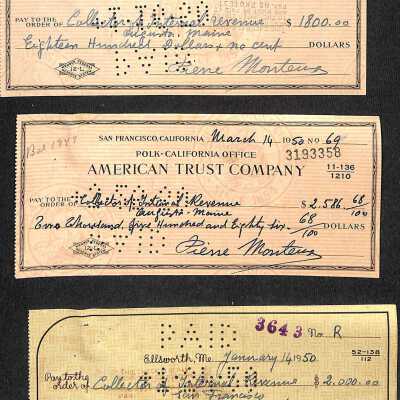 PAY TO THE
ORDER OF Collector of Internal Revenue $ 1800.00
Augusta, Maine
Eighteen Hundred Dollars & no cent DOLLARS
12-L
Pierre Monteux
Bal 1949
SAN FRANCISCO, CALIFORNIA March 14 1950 NO 69
POLK-CALIFORNIA OFFICE 3193358
AMERICAN TRUST COMPANY 11-136
1210
PAY TO THE
ORDER OF Collector of Internal Revenue $ 2.586.68/100
Augusta-Maine
Two Thousand Five Hundred and Eighty six 68/100 DOLLARS
12-L
Pierre Monteux
PAID
3643 No. R
Ellsworth, Me. January 14 1950 52-138
112
Pay to the
order of Collector of Internal Revenue $ 2.000.00
San Francisco